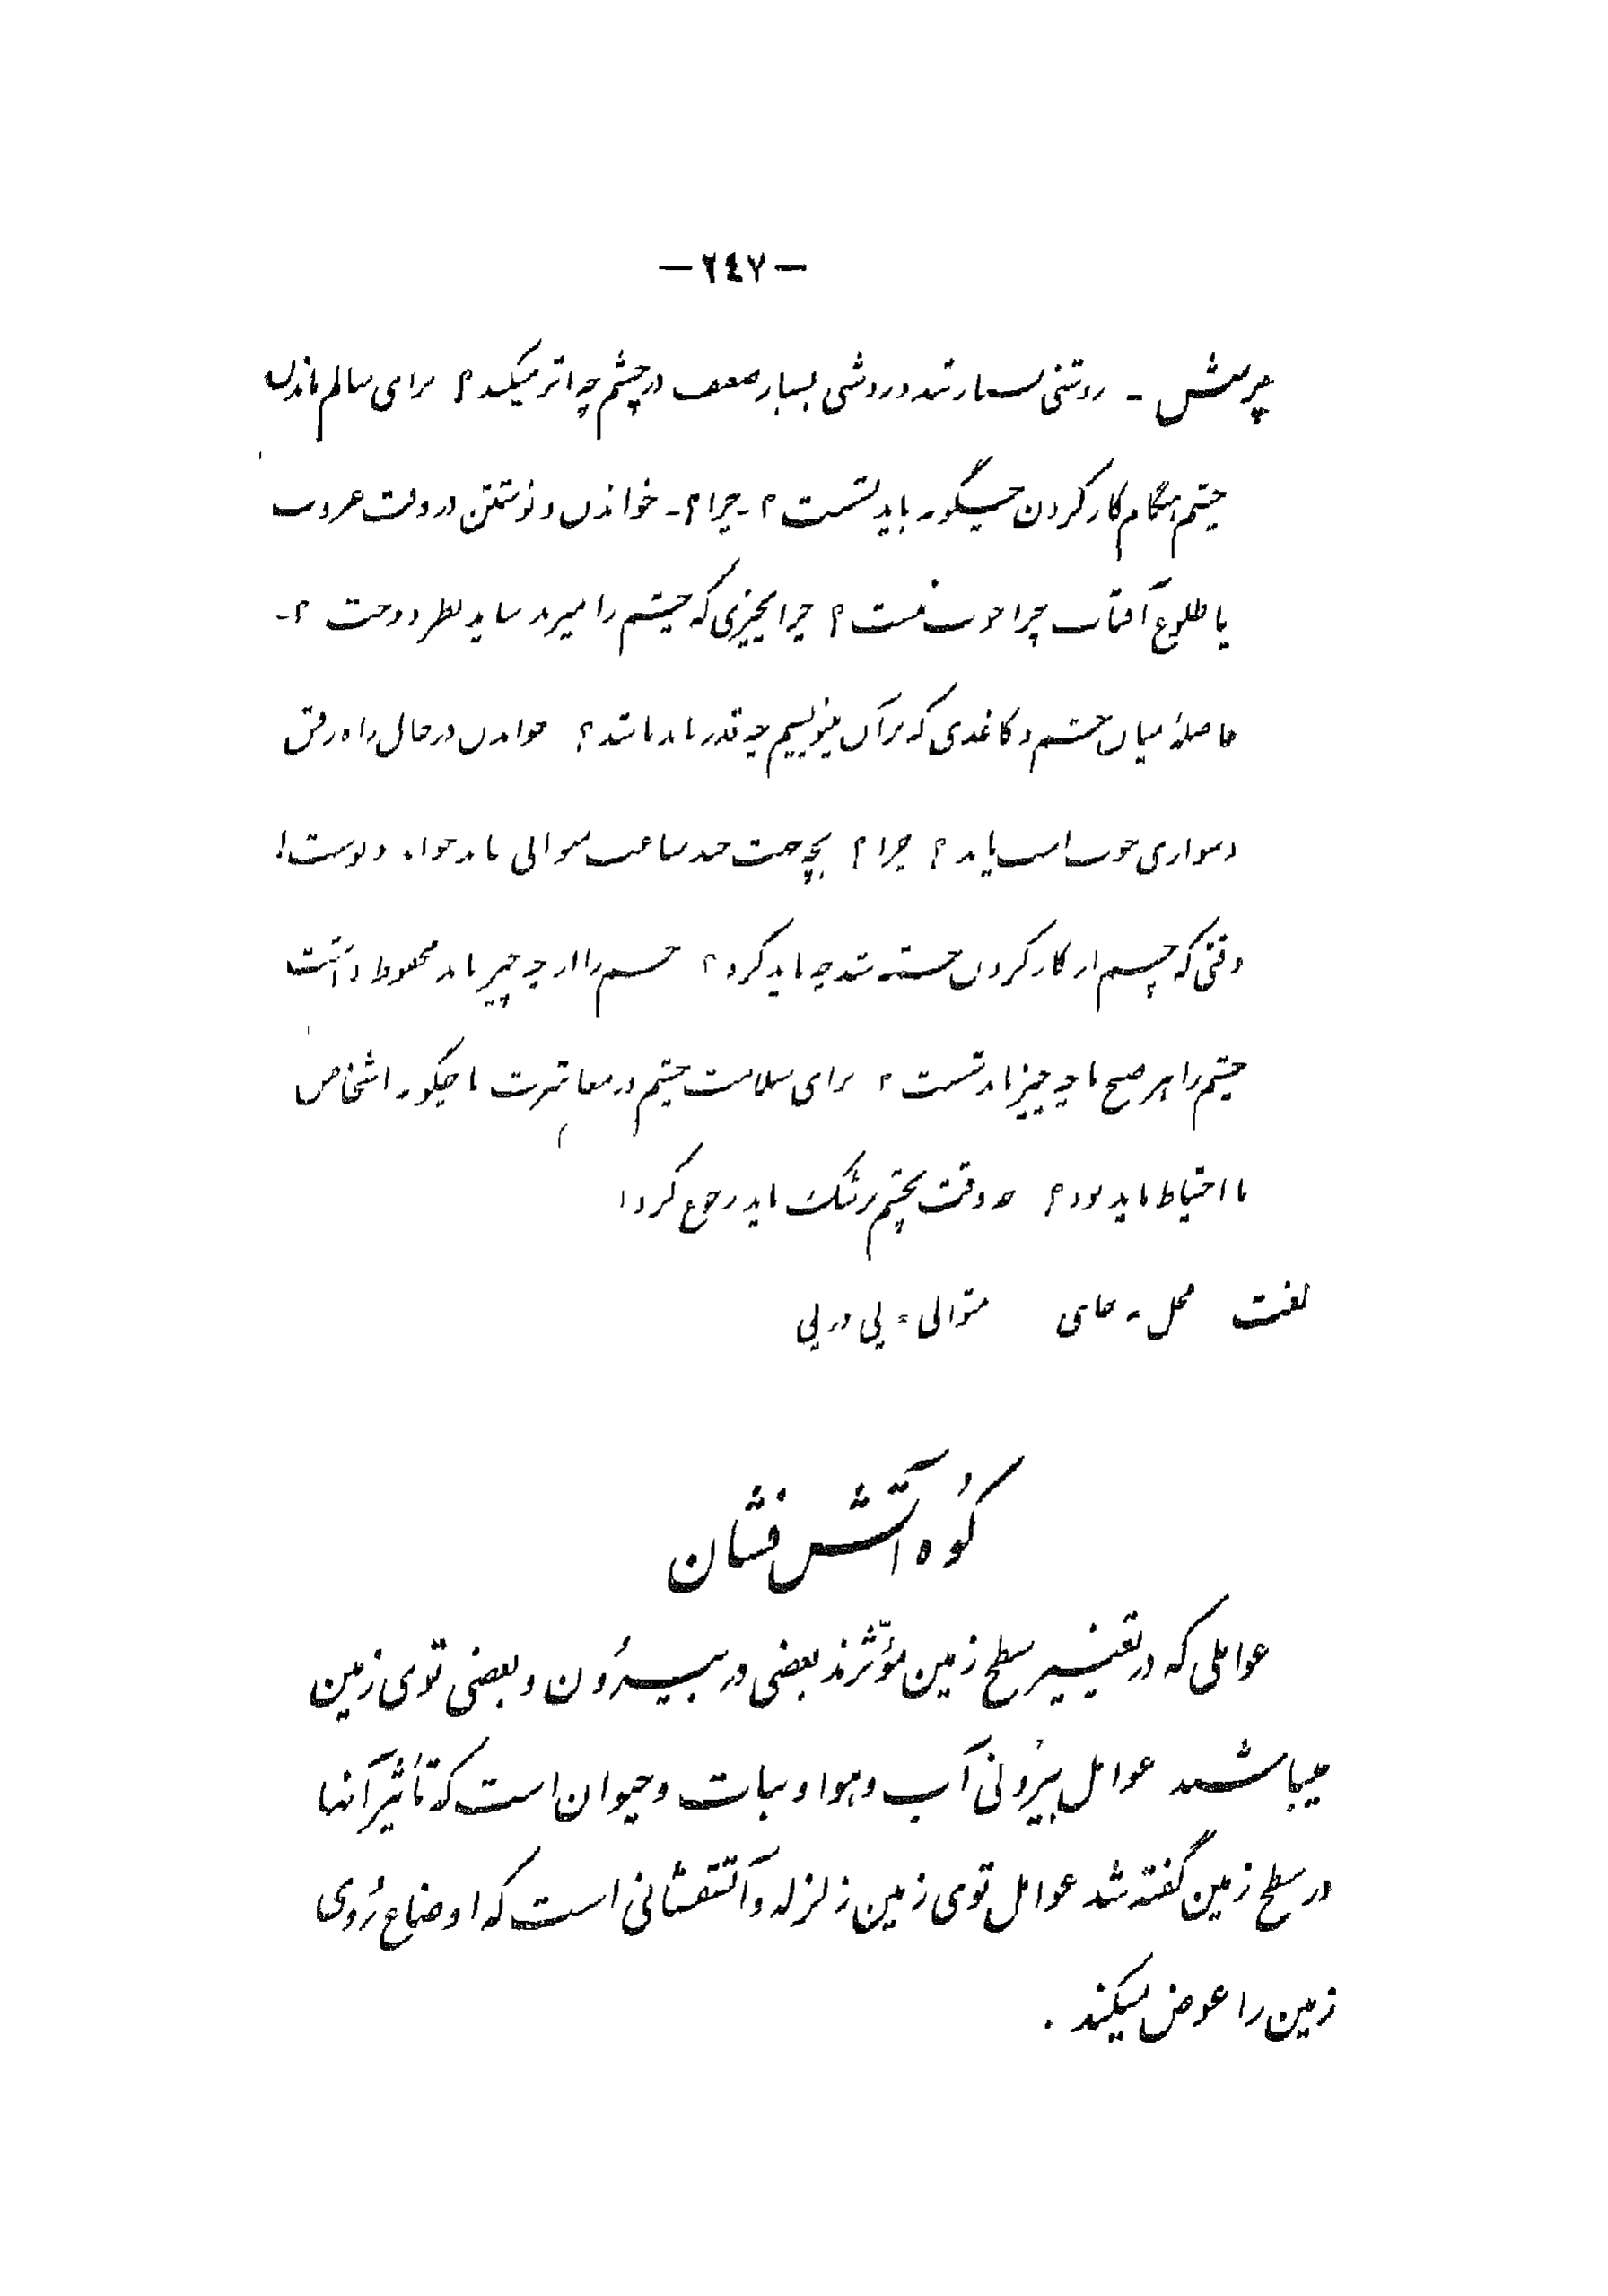 — ٢٤٧ —
پرسش - روشنی بسیار تند و روشنی بسیار ضعیف در چشم چه اثر میکند ؟ برای سالم ماندن
چشم هنگام کار کردن چگونه باید نشست ؟ - چرا ؟ - خواندن و نوشتن در وقت غروب
یا طلوع آفتاب چرا خوب نیست ؟ چرا بچیزی که چشم را میزند نباید نظر دوخت ؟ -
فاصلهٔ میان چشم و کاغذی که بر آن مینویسیم چه قدر باید باشد ؟ خواندن در حال راه رفتن
و سواری خوب است یا بد ؟ چرا ؟ بچه جهت چند ساعت متوالی نباید خواند و نوشت !
وقتی که چشم از کار کردن خسته شد چه باید کرد ؟ چشم را از چه چیز باید محفوظ داشت
چشم را هر صبح با چه چیز باید شست ؟ برای سلامت چشم در معاشرت با چگونه اشخاص
با احتیاط باید بود ؟ چه وقت بچشم پزشک باید رجوع کرد !
لغت محل = جای متوالی = پی در پی
کوه آتش فشان
عواملی که در تغییر سطح زمین مؤثّرند بعضی در بیرُون و بعضی توی زمین
میباشند عوامل بیرُونی آب و هوا و نبات و حیوان است که تأثیر آنها
در سطح زمین گفته شد عوامل توی زمین زلزله و آتشفشانی است که اوضاع رُوی
زمین را عوض میکند .